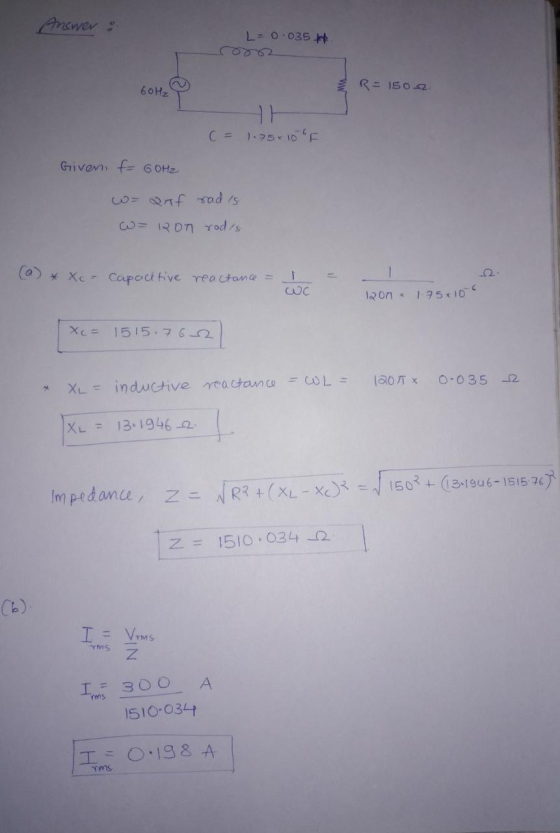 Answer :
L = 0.035 H.
60Hz
R = 150 Ω
C = 1.75×10⁻⁶F
Given: f = 60Hz
ω = 2πf rad/s
ω = 120π rad/s
(a) * Xc = Capacitive reactance = 1/ωC = 1/(120π × 1.75×10⁻⁶) Ω.
Xc = 1515.76 Ω
* XL = inductive reactance = ωL = 120π × 0.035 Ω
XL = 13.1946 Ω.
Impedance, Z = √(R² + (XL - Xc)²) = √(150² + (13.1946 - 1515.76)²)
Z = 1510.034 Ω
(b).
Irms = Vrms/Z
Irms = 300/1510.034 A
Irms = 0.198 A